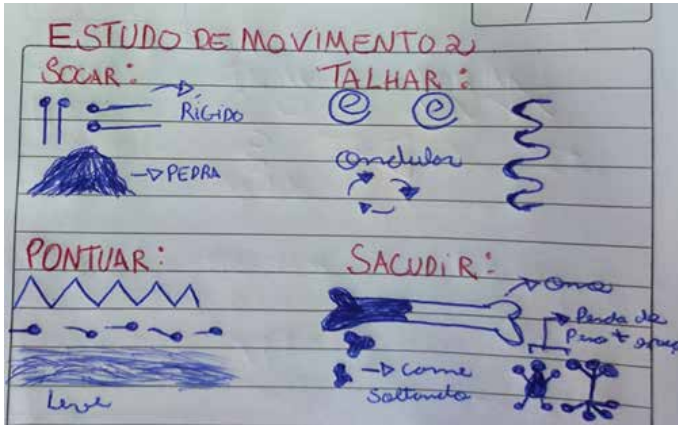 ESTUDO DE MOVIMENTO 2
SOCAR:
RÍGIDO
PEDRA
TALHAR:
Ondular
PONTUAR:
Leve
SACUDIR:
Perda de
Peso +
Carne
Soltando